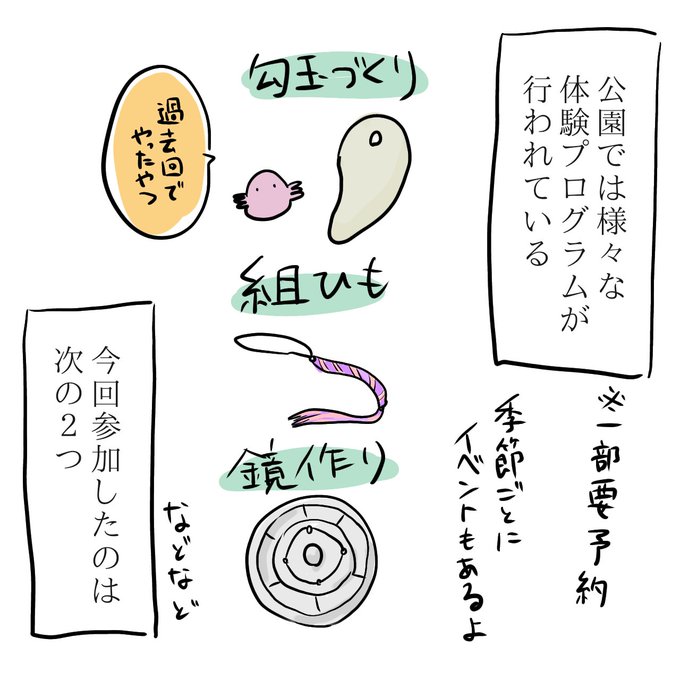 公園では様々な
体験プログラムが
行われている
※一部要予約
季節ごとに
イベントもあるよ
勾玉づくり
過去回で
やったやつ
組ひも
鏡作り
などなど
今回参加したのは
次の2つ